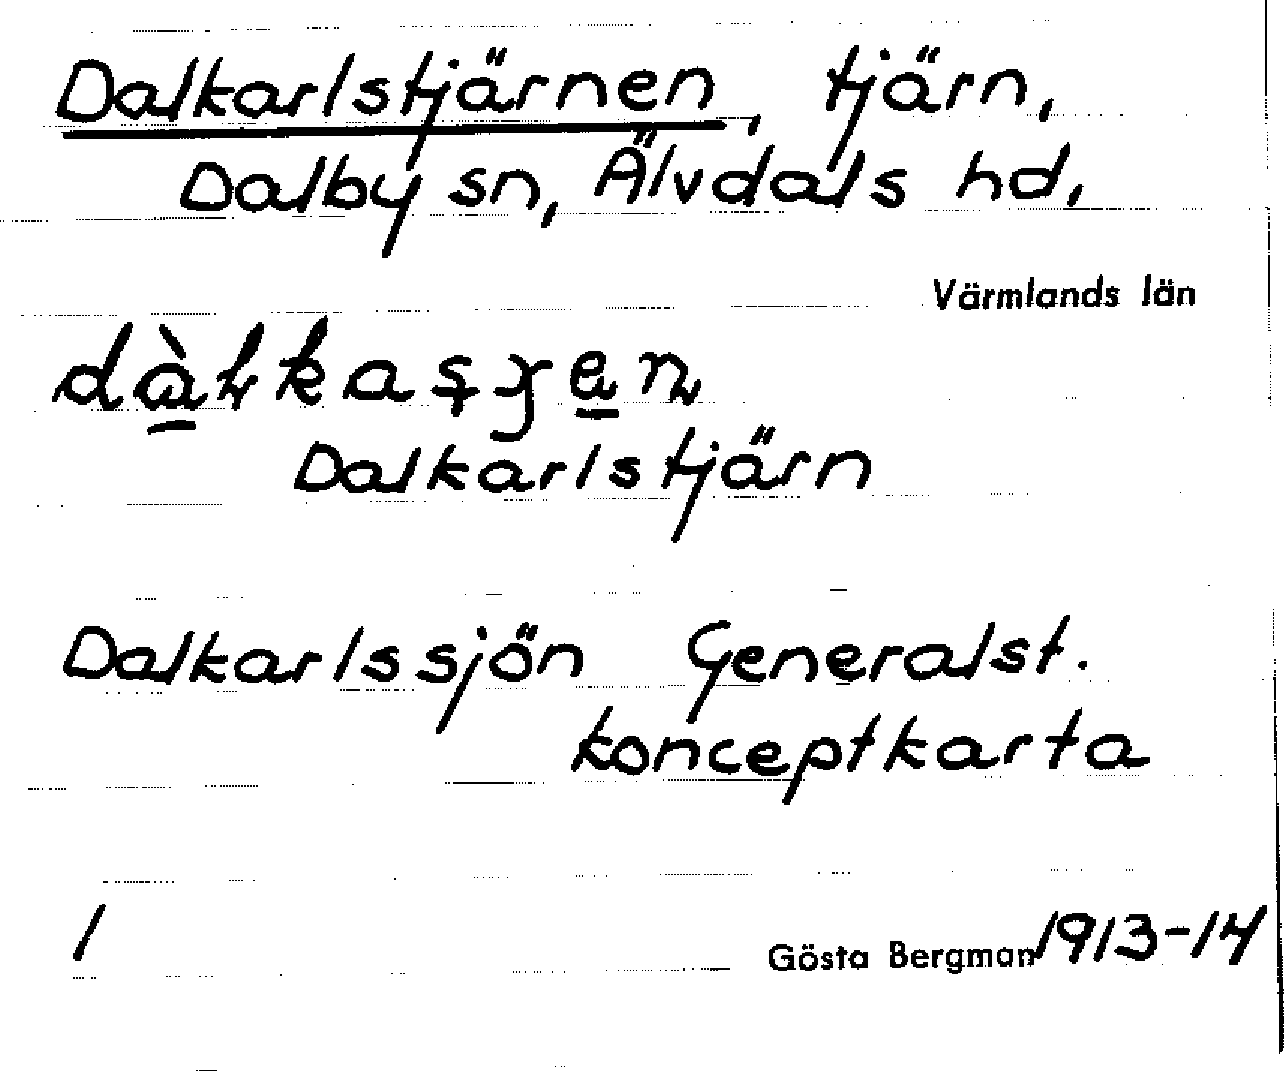 Dalkarlstjärnen, tjärn,
Dalby sn, Älvdals hd,
Värmlands län
Dalkarlstjärn
Dalkarlssjön Generalst.
konceptkarta
1
Gösta Bergman 1913-14